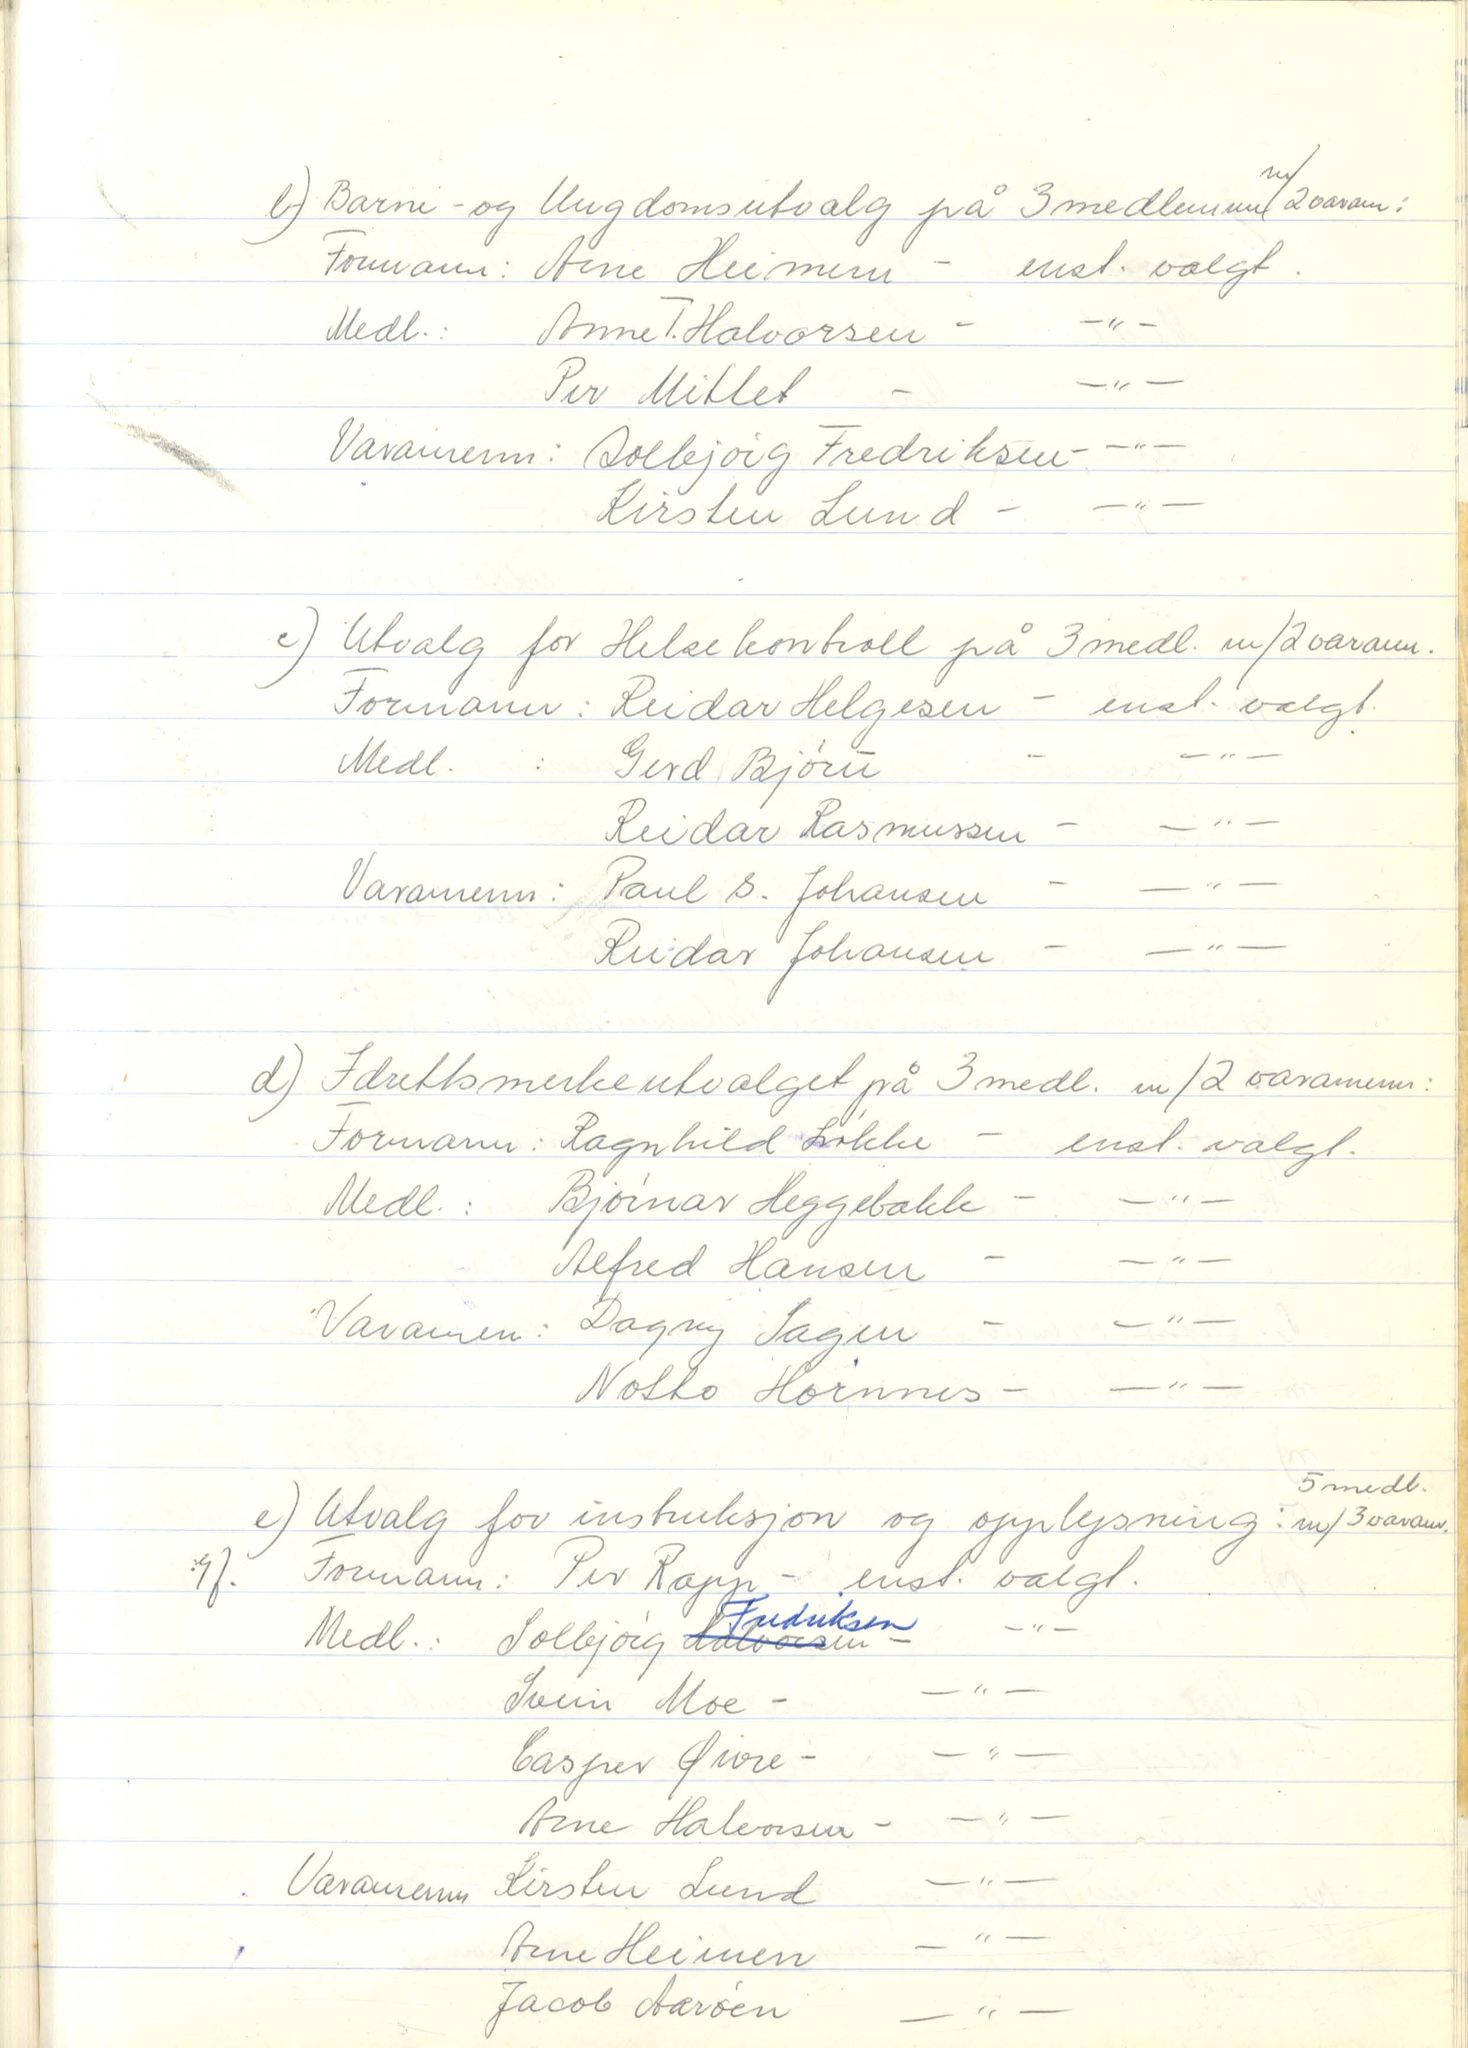 b) Barne- og Ungdomsutvalg på 3 medlemmer m/ 2 varam:
Formann: Arne Heimen - enst. valgt.
Medl.: Anne T. Halvorsen - -"-
Per Mittet - -"-
Varamenn: Solbjörg Fredriksen - -"-
Kirsten Lund - -"-
c) Utvalg for Helsekontroll på 3 medl. m/ 2 varam.
Formann: Reidar Helgesen - enst. valgt.
Medl. : Gerd Björu - -"-
Reidar Rasmussen - -"-
Varamenn: Paul S. Johansen - -"-
Reidar Johansen - -"-
d) Idrettsmerkeutvalget på 3 medl. m/ 2 varamenn:
Formann: Ragnhild Lökke - enst. valgt.
Medl.: Björnar Heggebakk - -"-
Alfred Hansen - -"-
Varamen: Dagny Sagen - -"-
Notto Hornnes - -"-
e) Utvalg for instruksjon og opplysning: 5 medl. m/ 3 varam.
Formann: Per Rapp - enst. valgt.
Medl.: Solbjörg Halvorsen Fredriksen - -"-
Svein Moe - -"-
Casper Øivre - -"-
Arne Halvorsen - -"-
Varamenn Kirsten Lund -"-
Arne Heimen -"-
Jacob Aaröen -"-